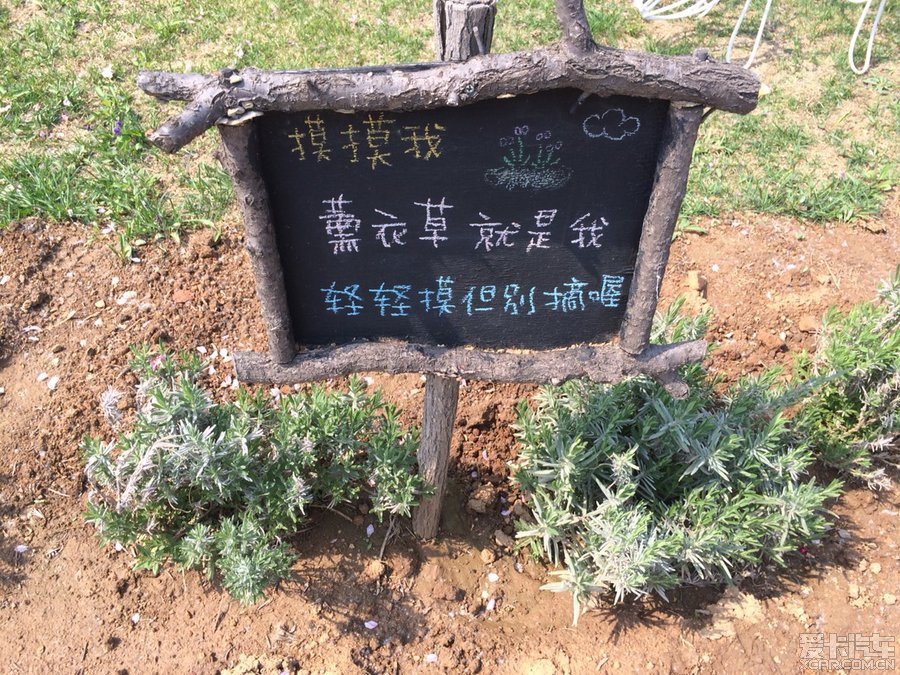 摸摸我
薰衣草就是我
轻轻摸但别摘喔
爱卡汽车
XCAR.COM.CN